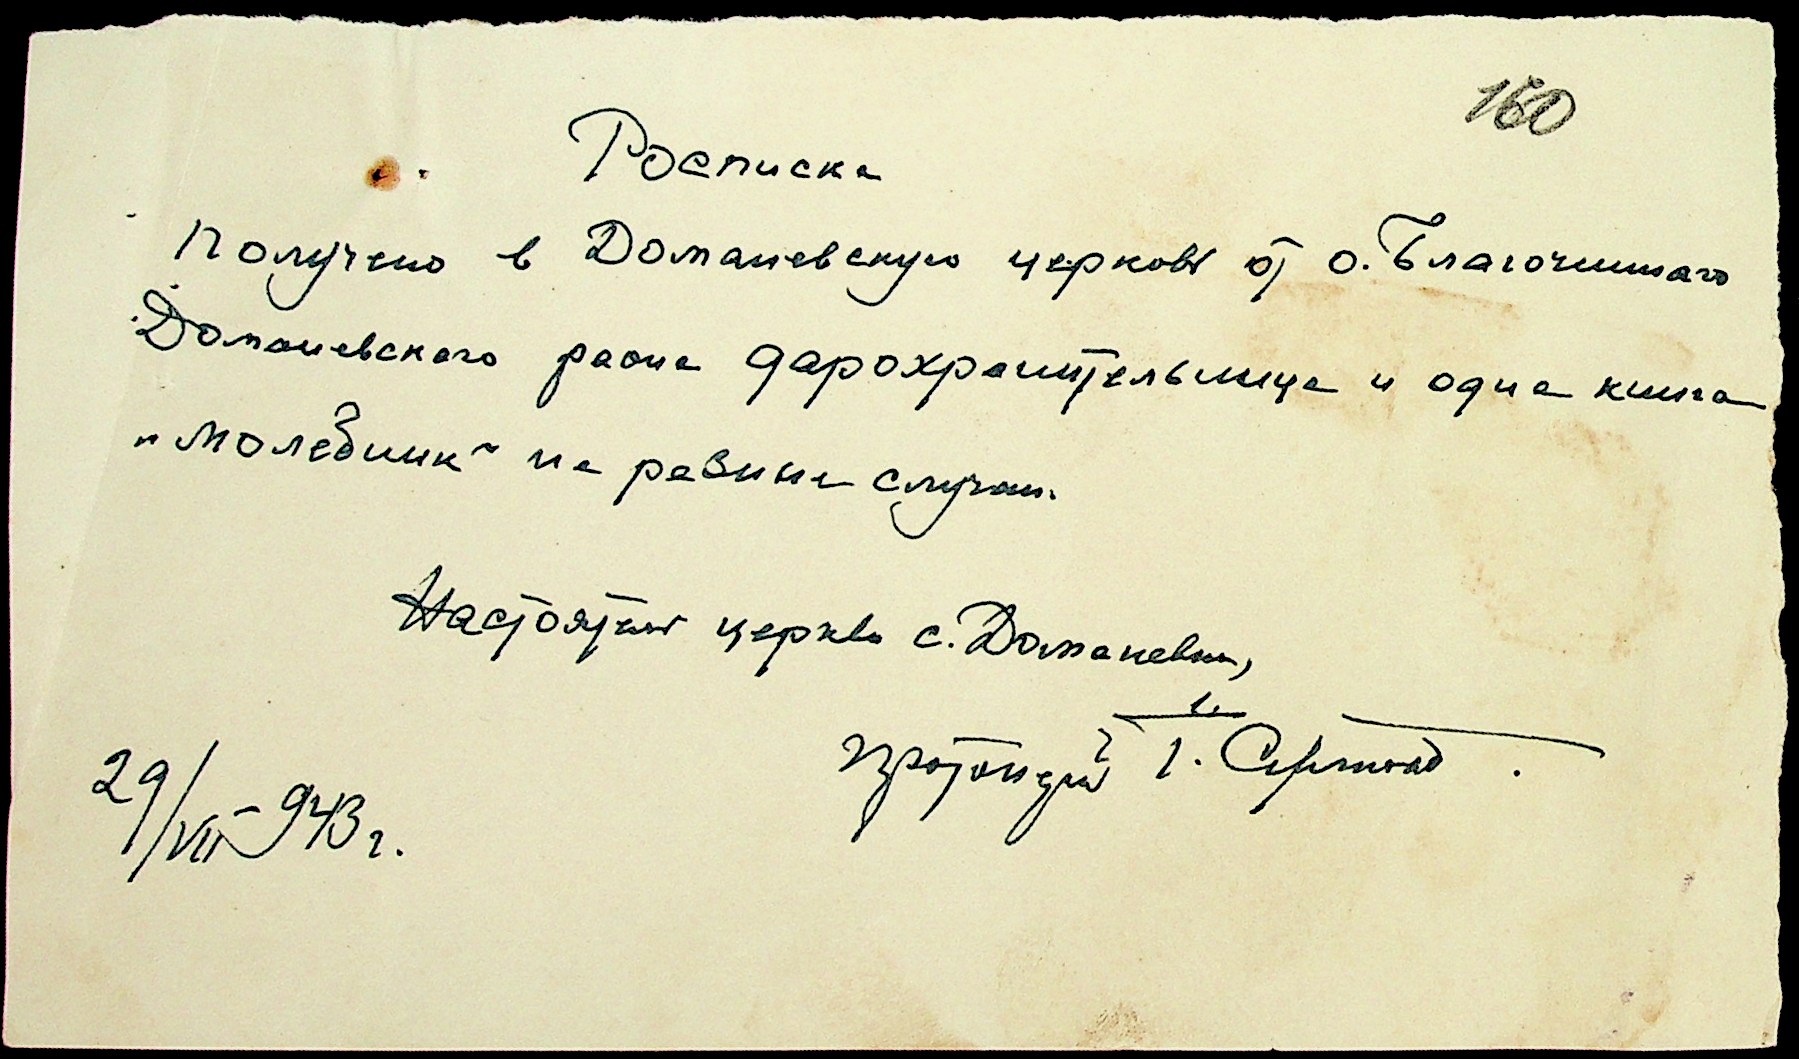 160
Росписка
Получено в Доманевскую церковь от о. Благочиннаго
Доманевского раона дарохранительница и одна книга
„Молебник“ на разные случаи.
Настоятель церкви с. Доманевки,
протоиерей I.
29/VII-943 г.